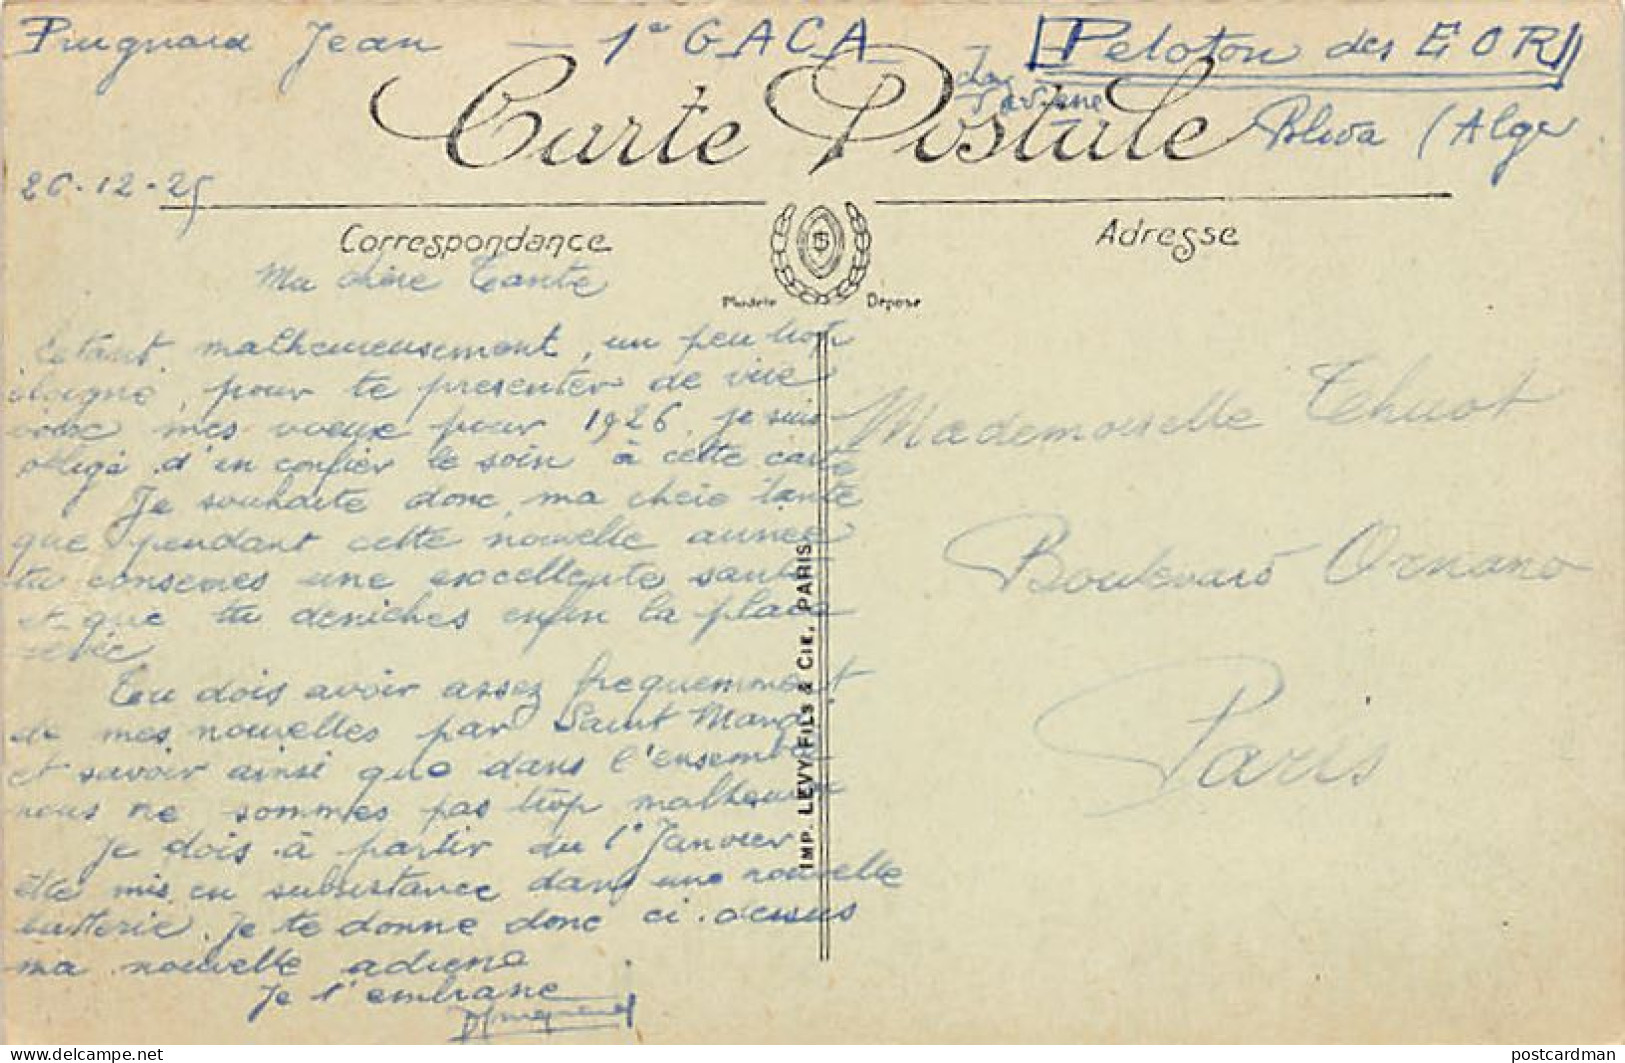 Prugnard Jean — 1er GACA [Peloton des EOR]
Blida (Alger
26-12-25
Carte Postale
Correspondance
Adresse
Modèle Déposé
Ma chère Tante
Etant malheureusement, un peu trop
éloigné, pour te presenter de vive
voix mes voeux pour 1926, je suis
obligé d'en confier le soin à cette carte
Je souhaite donc, ma chère tante
que pendant cette nouvelle année
tu conserves une excellente santé
et que tu deniches enfin la place
revée
Tu dois avoir assez frequemment
de mes nouvelles par Saint Mandé
et savoir ainsi que dans l'ensemble
nous ne sommes pas trop malheureux
Je dois à partir du 1° Janvier
être mis en subsistance dans une nouvelle
batterie. Je te donne donc ci-dessus
ma nouvelle adresse
Je t'embrasse
JPrugnard
IMP. LEVY FILS & CIE, PARIS
Mademoiselle Thuot
Boulevard Ornano
Paris
delcampe.net
postcardman